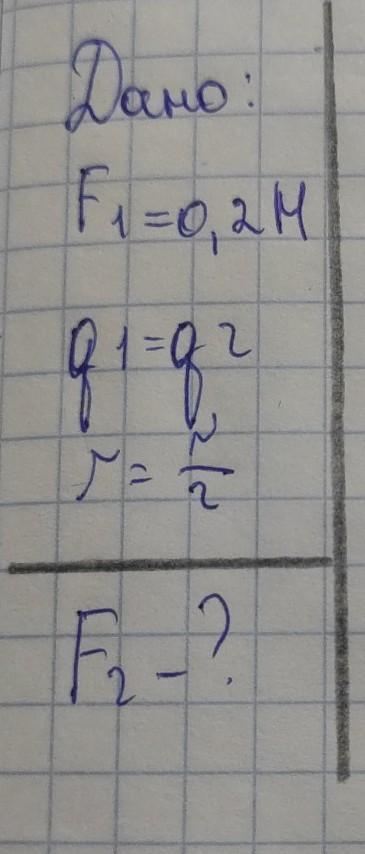 Дано:
F₁=0,2Н
q1=q2
r=r/2
F₂-?